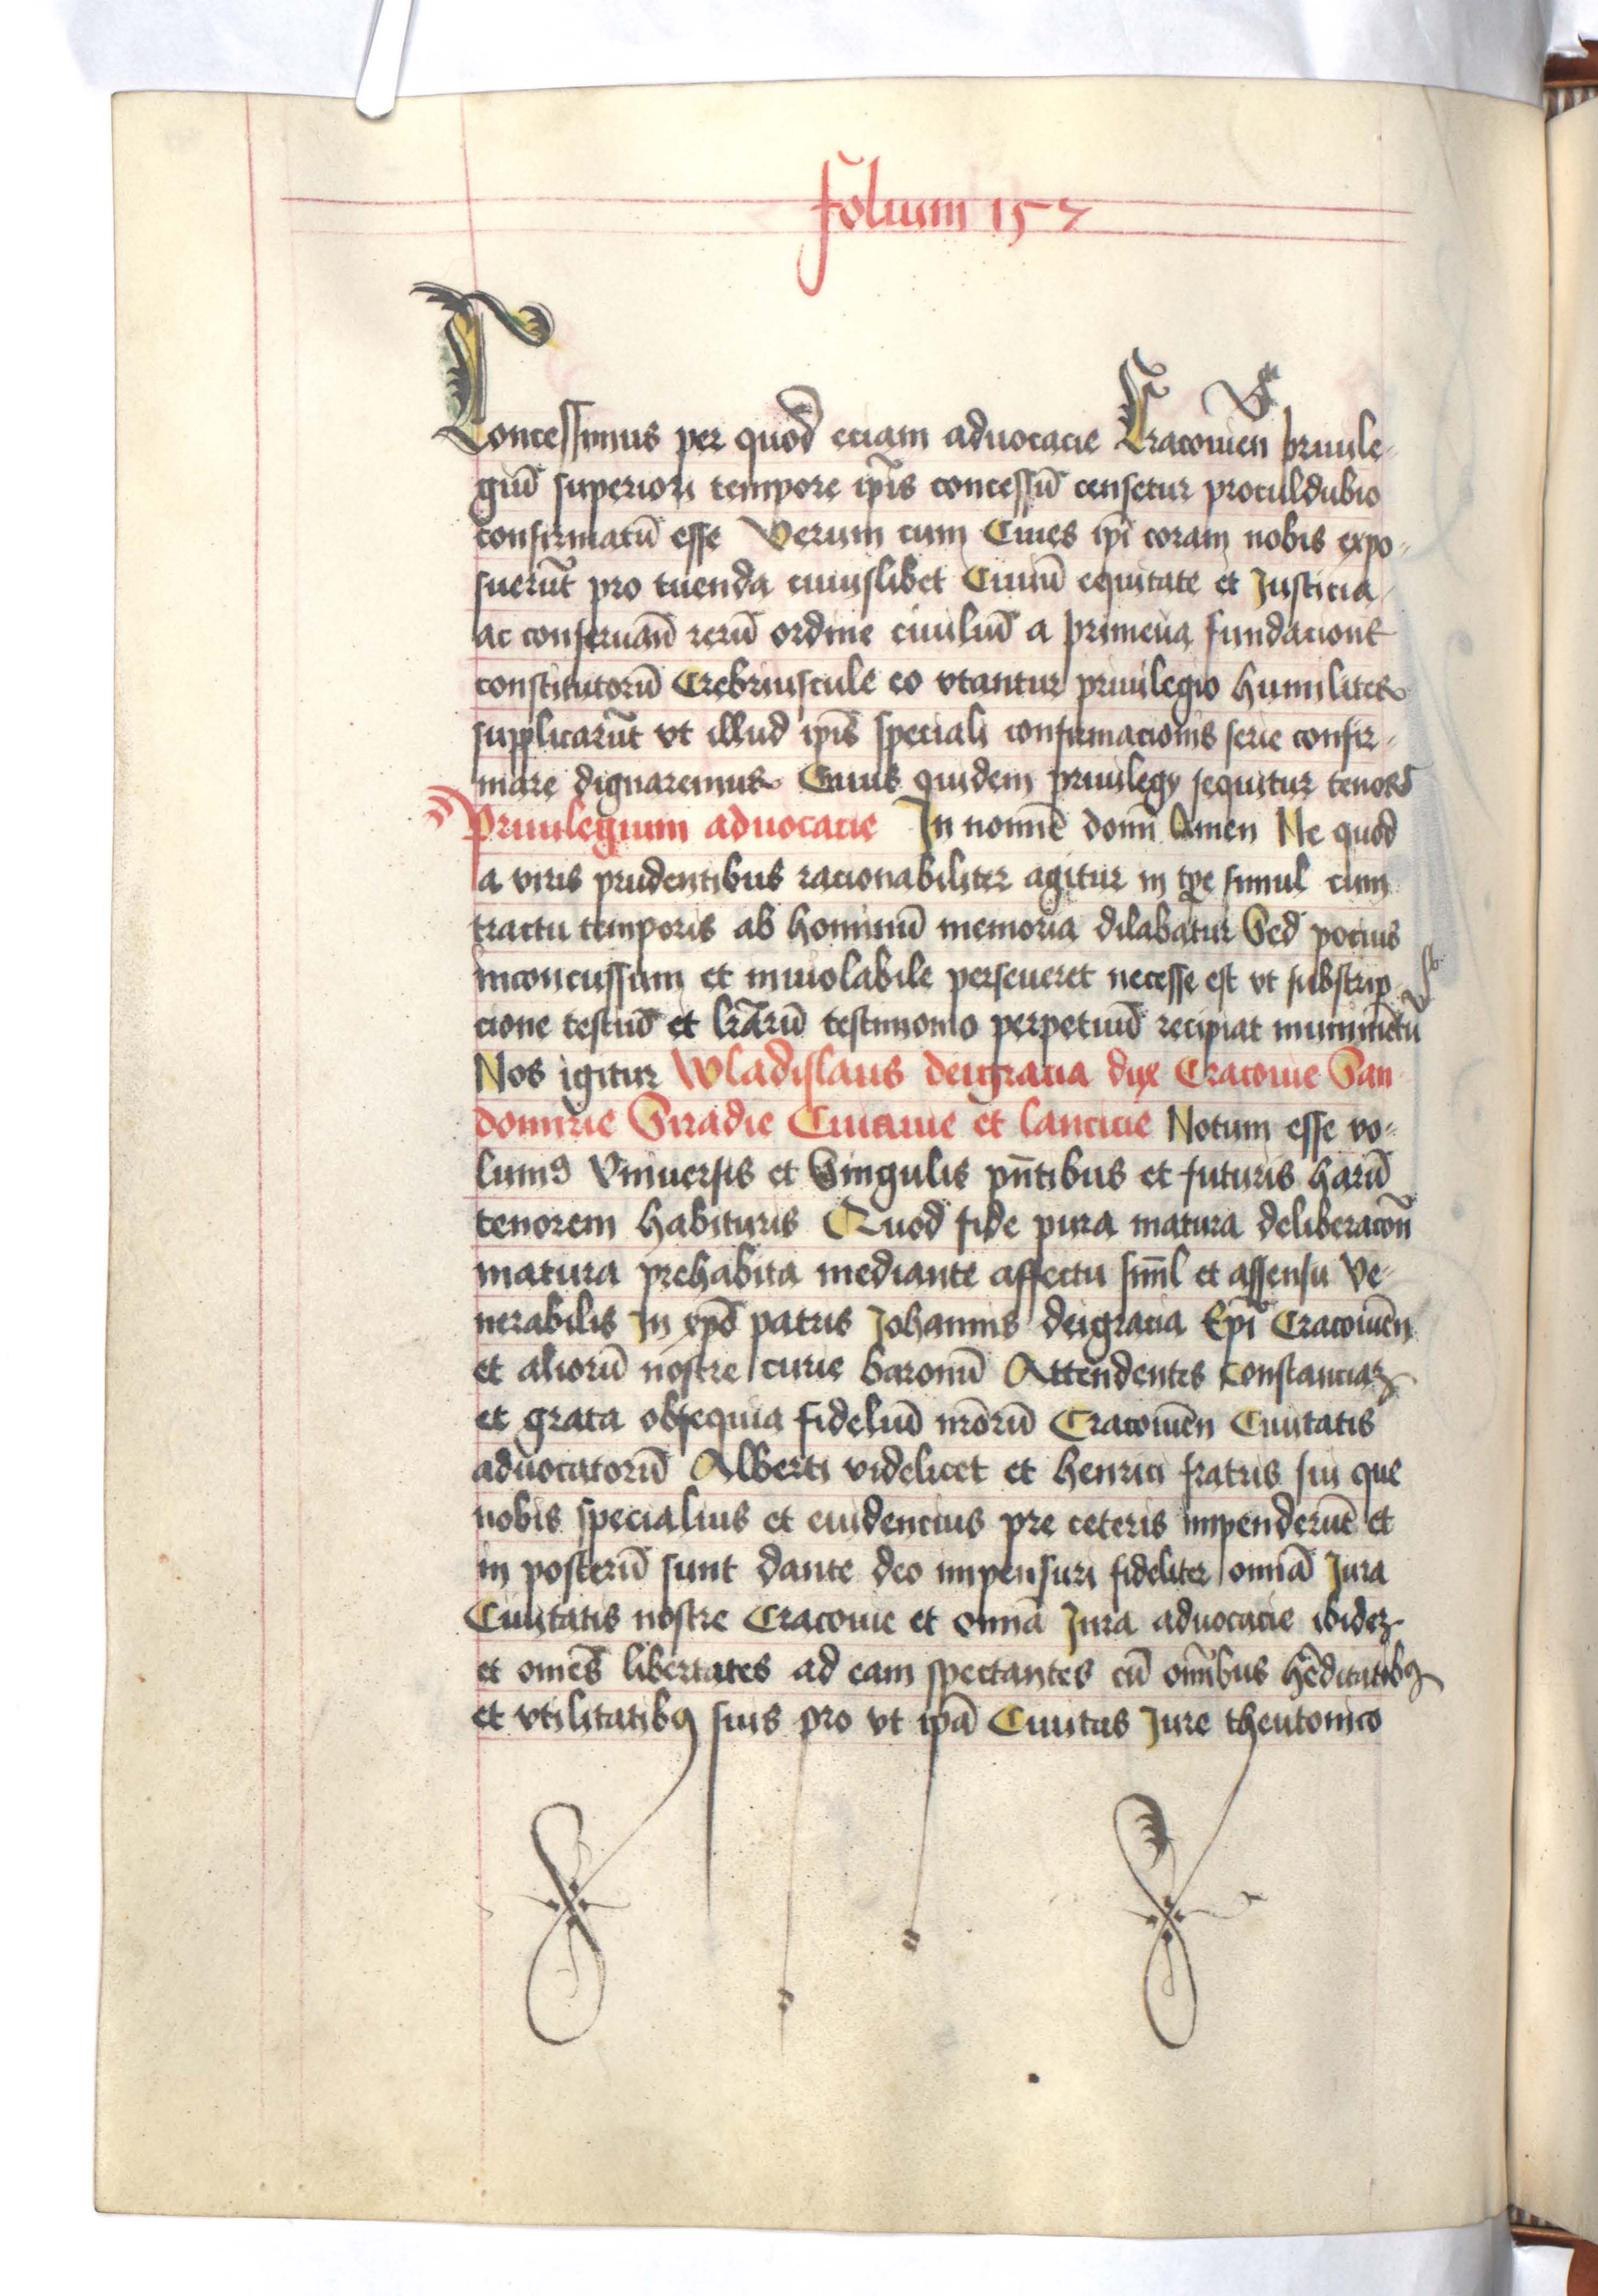 folium 157
Concessimus per quod eciam aduocacie Cracouien priuile-
giū superiori tempore ip̄is concessū censetur proculdubio
confirmatū esse Verum cum Ciues ip̄i coram nobis expo-
suerūt pro tuenda cuiuslibet Ciuiū equitate et Justicia
ac conseruan̄ rerū ordine ciuiliū a primeua fundacione
constitutorū Crebriuscule eo vtantur priuilegio humiliter
supplicarūt vt illud ip̄is speciali confirmacionis serie confir-
mare dignaremur Cuius quidem priuilegy sequitur tenor
Priuilegium aduocacie In nomīe domī Amen Ne quod
a viris prudentibus racionabiliter agitur in tp̄e simul cum
tractu temporis ab hominū memoria dilabatur Sed pocius
inconcussum et inuiolabile perseueret necesse est vt subscrip
cione testiū et lr̄arū testimonio perpetuū recipiat munimētū
Nos igitur Wladislaus deigracia dux Cracouie San
domirie Siradie Cuiauie et lancicie Notum esse vo-
lumꝰ Vniuersis et Singulis pn̄tibus et futuris harū
tenorem habituris Quod fide pura matura deliberacōn̄
matura prehabita mediante affectu siml̄ et assensu Ve-
nerabilis In xp̄o patris Johannis deigracia Ep̄i Cracouien̄
et aliorū nostre curie baronū Attendentes constanciaꝫ
et grata obsequia fideliū nr̄orū Cracouien̄ Ciuitatis
aduocatorū Alberti videlicet et henrici fratris sui que
nobis specialius et euidencius pre ceteris impenderūt et
in posterū sunt dante deo impensuri fideliter omīa Jura
Ciuitatis nostre Cracouie et omīa Jura aduocacie ibideꝫ
et om̄es libertates ad eam spectantes cū om̄ibus hēditatibꝫ
et vtilitatibꝫ suis pro vt ip̄a Ciuitas Jure theutonico